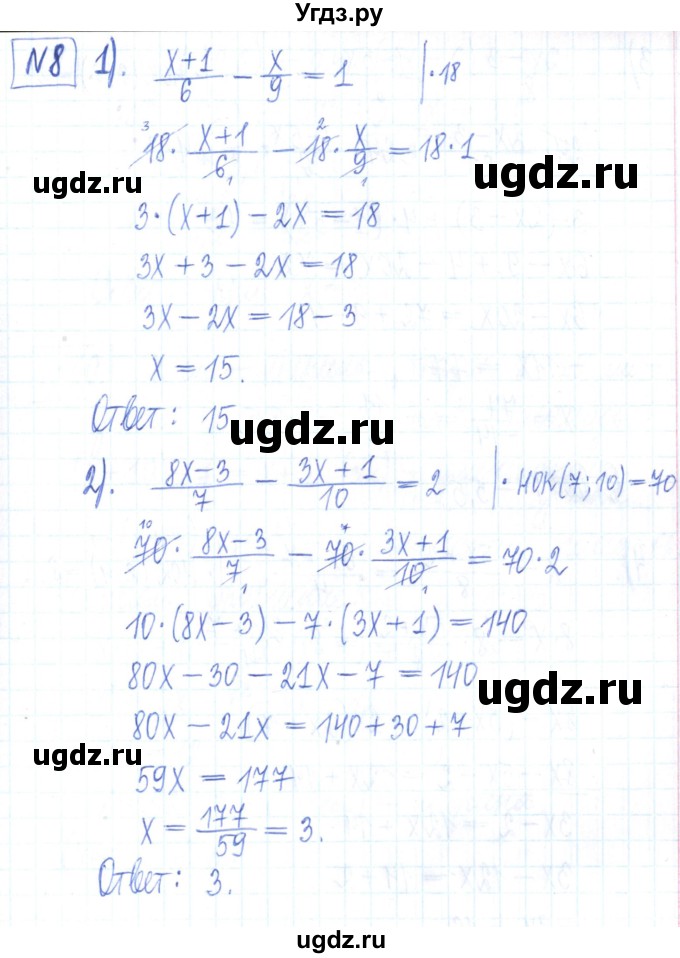 Угдз.ру
№8 1). (x+1)/6 − x/9 = 1 | · 18
³18 · (x+1)/6₁ − ²18 · x/9₁ = 18 · 1
ugdz.ru ugdz.ru
3 · (x+1) − 2x = 18
3x + 3 − 2x = 18
3x − 2x = 18 − 3
x = 15.
Ответ: 15
ugdz.ru
2). (8x−3)/7 − (3x+1)/10 = 2 | · НОК(7; 10) = 70
¹⁰70 · (8x−3)/7₁ − ⁷70 · (3x+1)/10₁ = 70 · 2
ugdz.ru
10 · (8x−3) − 7 · (3x+1) = 140
80x − 30 − 21x − 7 = 140
ugdz.ru
80x − 21x = 140 + 30 + 7
ugdz.ru
59x = 177
x = 177/59 = 3.
Ответ: 3.
ugdz.ru